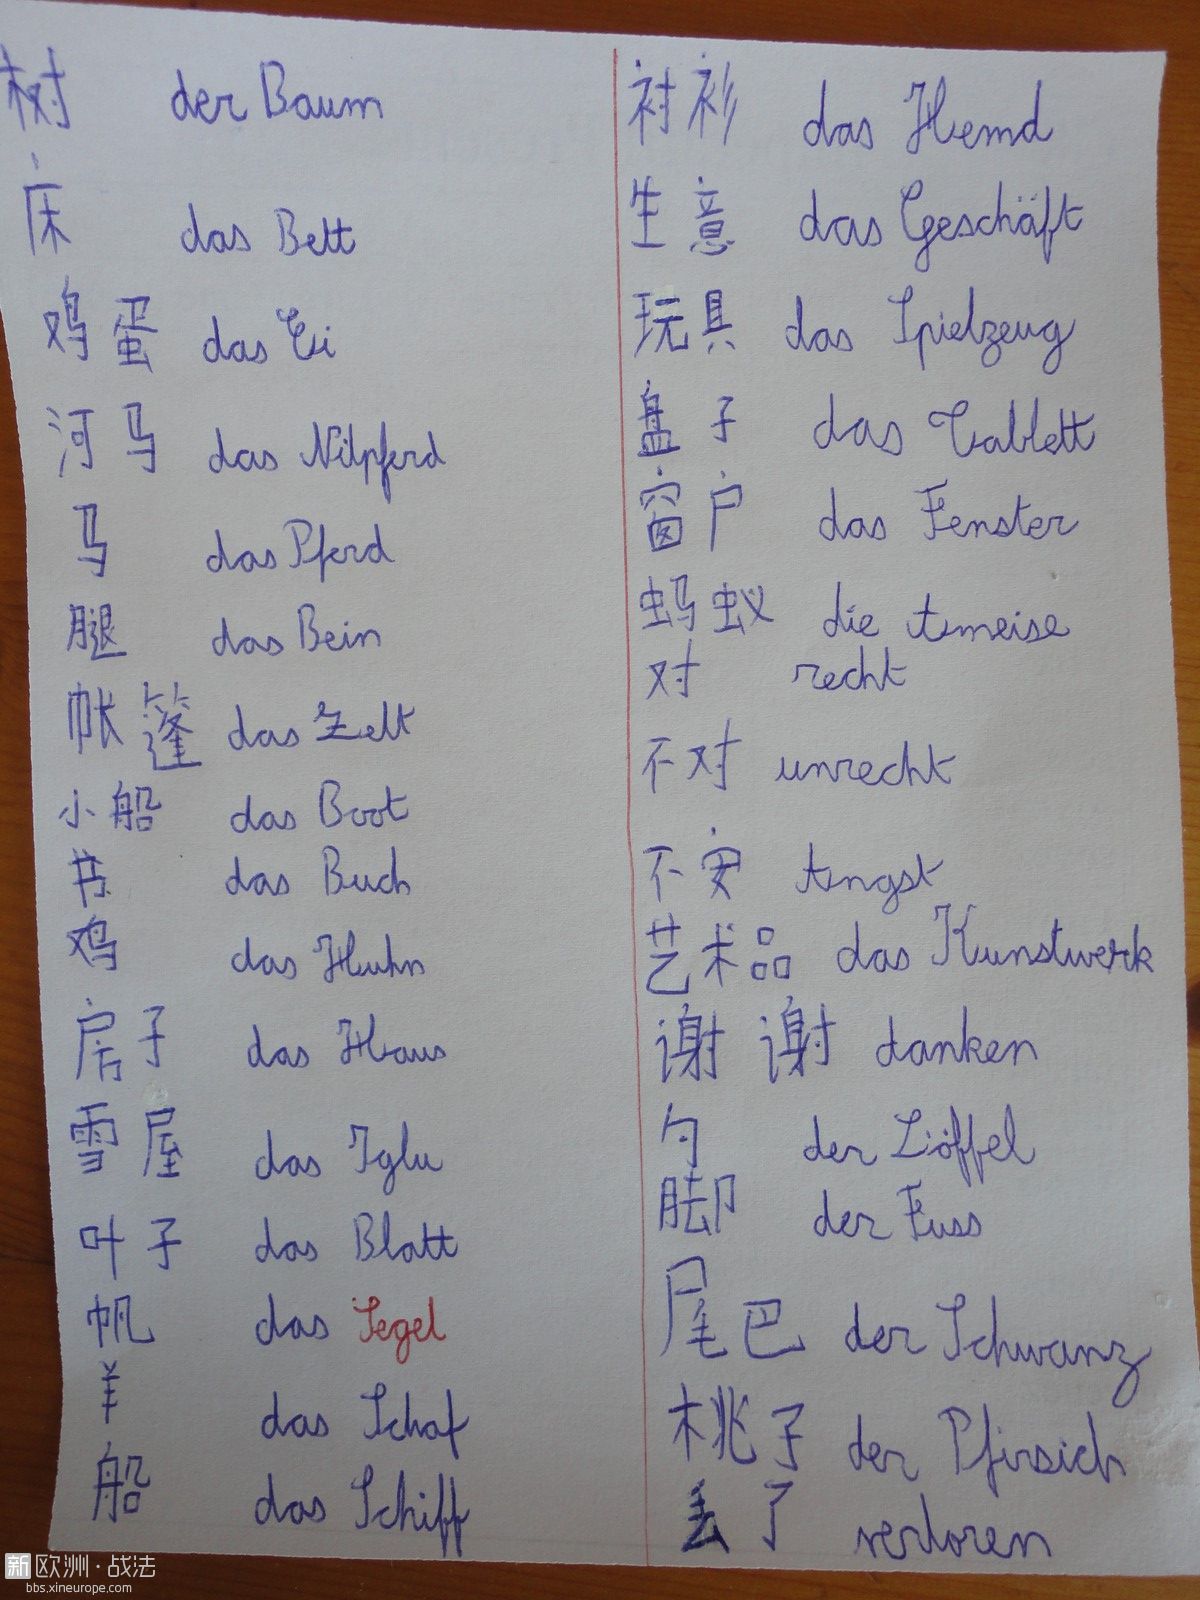 树 der Baum
床 das Bett
鸡蛋 das Ei
河马 das Nilpferd
马 das Pferd
腿 das Bein
帐篷 das Zelt
小船 das Boot
书 das Buch
鸡 das Huhn
房子 das Haus
雪屋 das Iglu
叶子 das Blatt
帆 das Segel
羊 das Schaf
船 das Schiff
衬衫 das Hemd
生意 das Geschäft
玩具 das Spielzeug
盘子 das Tablett
窗户 das Fenster
蚂蚁 die Ameise
对 recht
不对 unrecht
不安 Angst
艺术品 das Kunstwerk
谢谢 danken
勺 der Löffel
脚 der Fuss
尾巴 der Schwanz
桃子 der Pfirsich
丢了 verloren
新欧洲·战法
bbs.xineurope.com